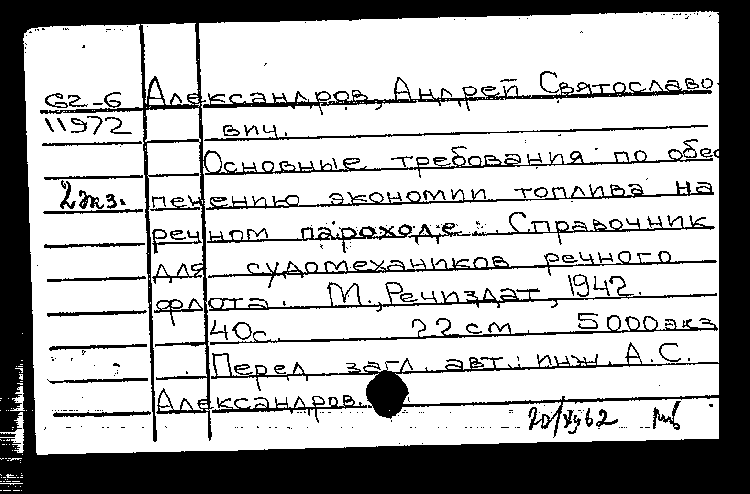 62-6 Александров, Андрей Святославо-
11972 вич.
Основные требования по обес
2 экз. печению экономии топлива на
речном пароходе. Справочник
для судомехаников речного
флота. М., Речиздат, 1942.
40с. 22 см 5000 экз
Перед загл. авт.: инж. А.С.
Александров.